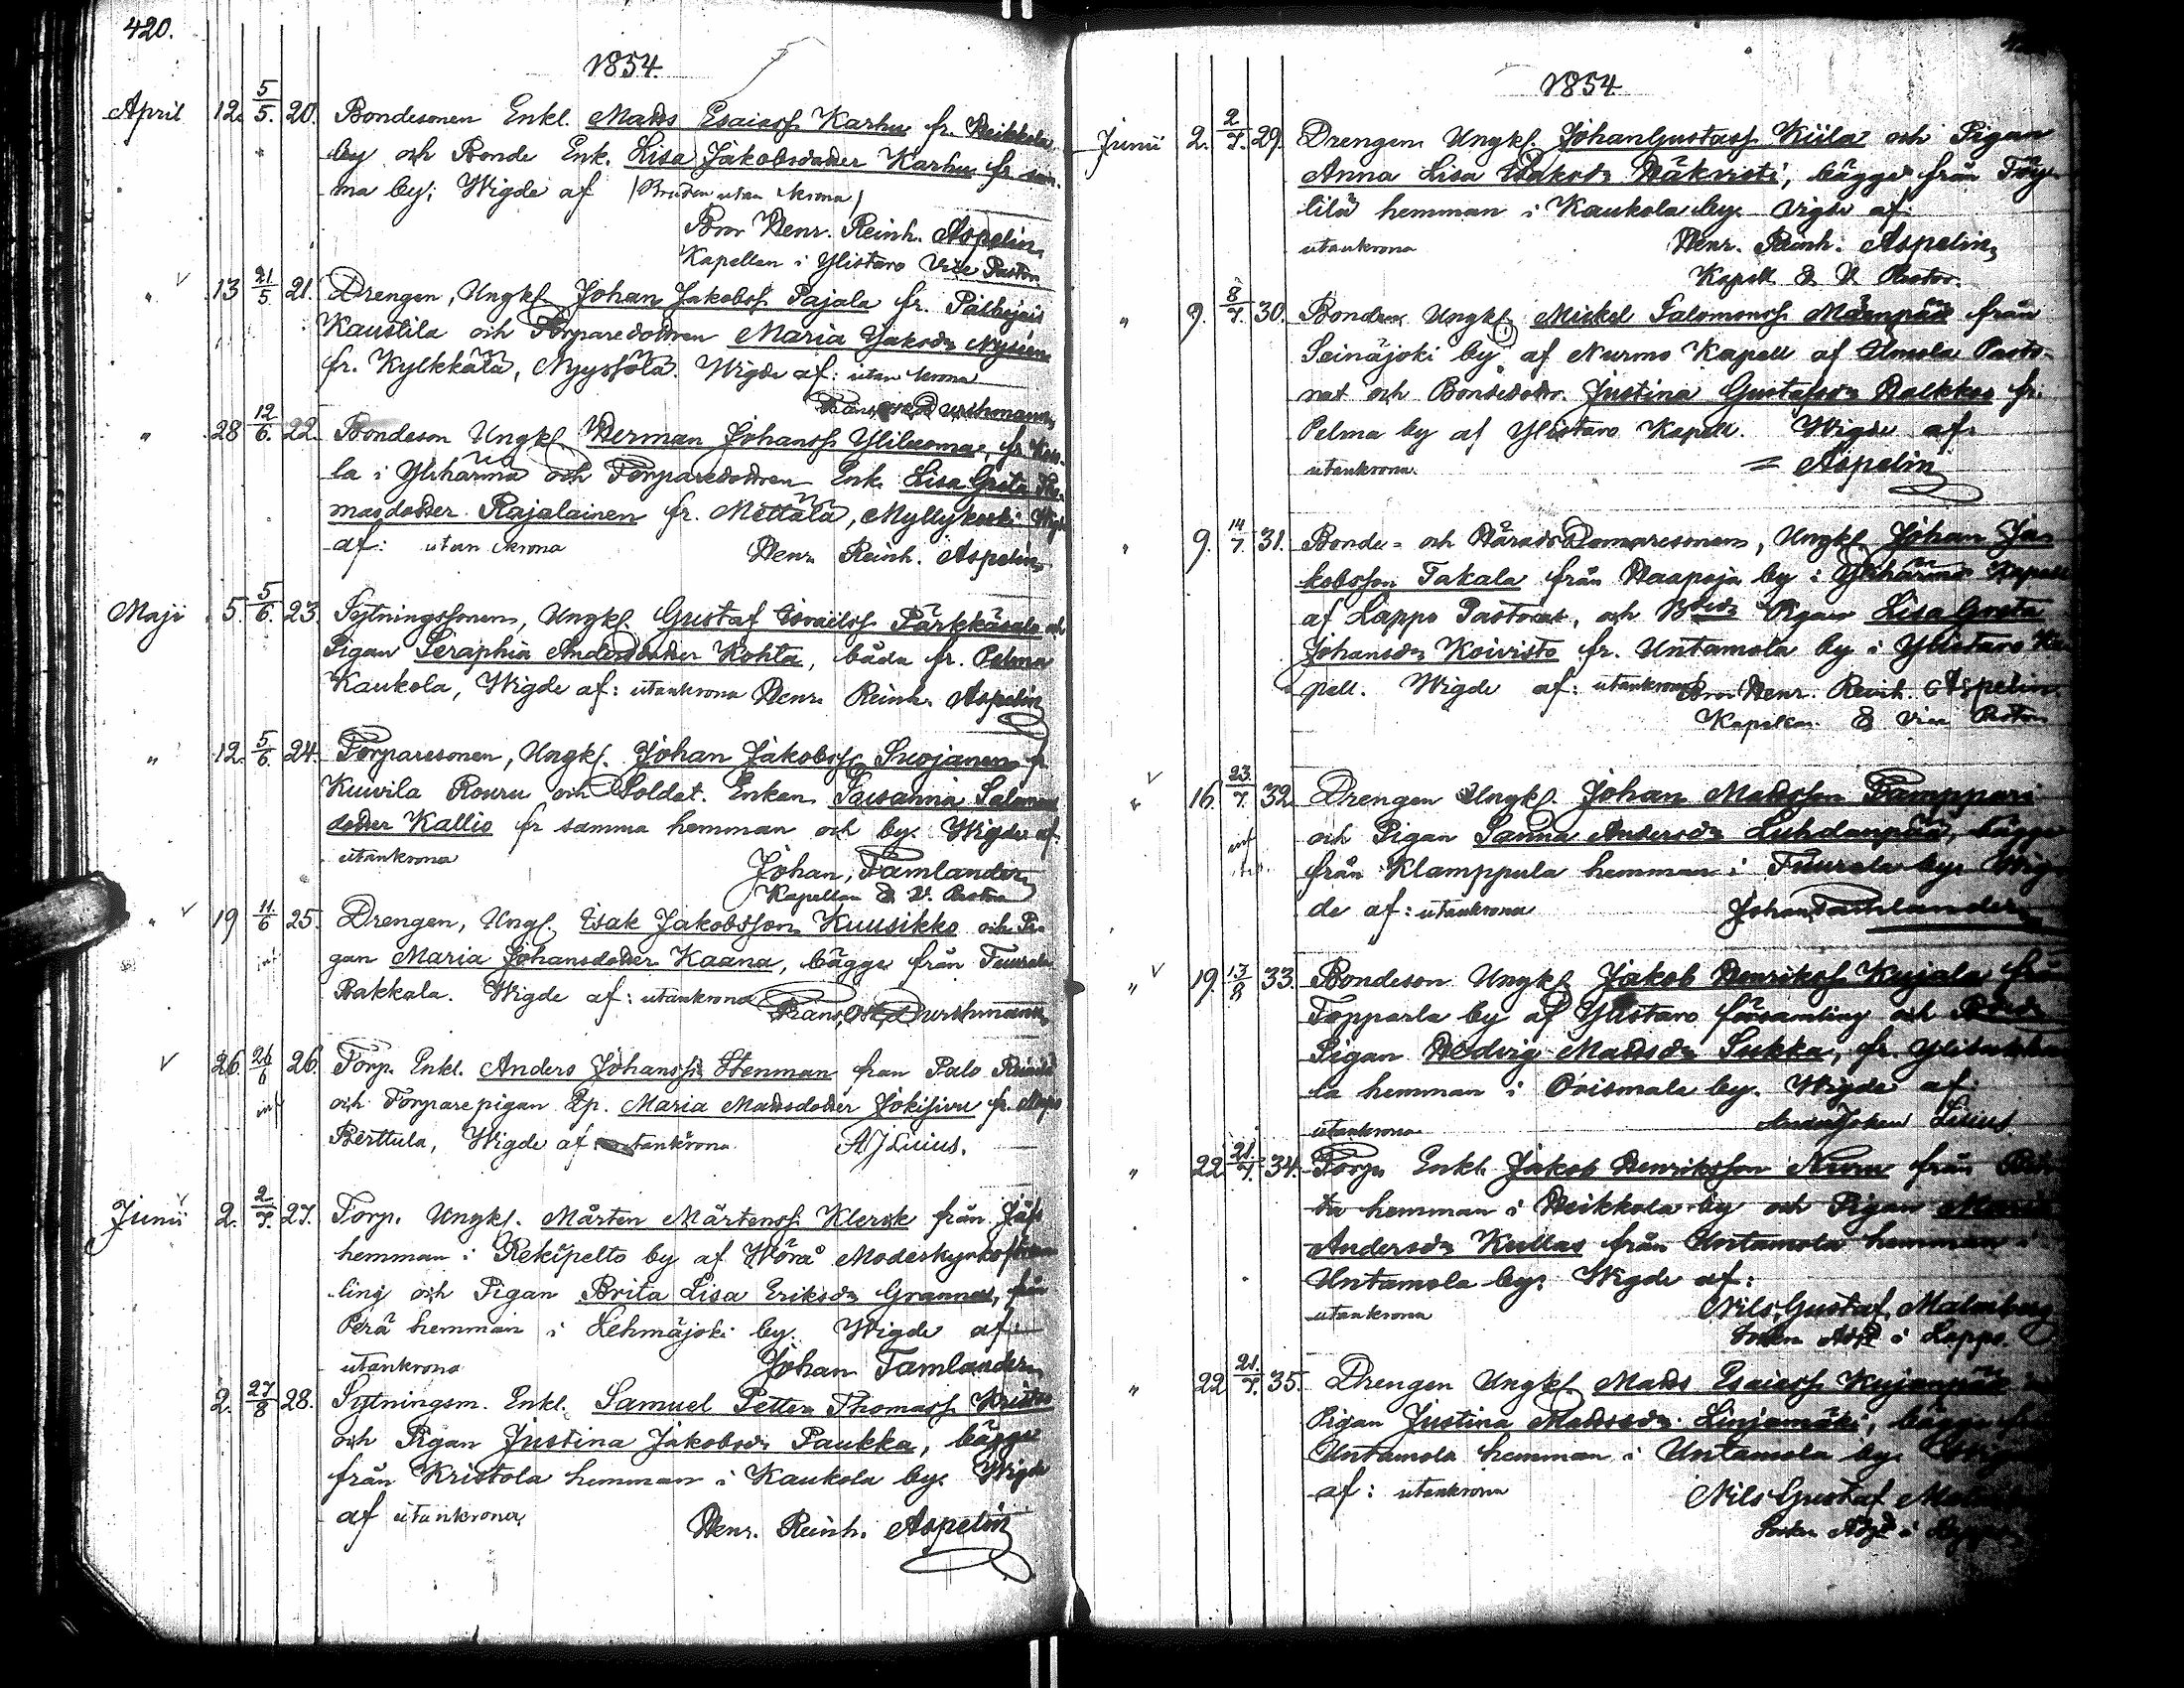 420.
1854.
April 12. 5/5. 20. Bondesonen Enkl. Matts Esaiass. Karhu fr. Heikkola
by och Bonde Enk. Lisa Jakobsdotter Karhu fr. sam-
ma by; Wigde af (Bruden utan krona)
Henr. Reinh. Aspelin
Kapellan i Ylistaro Vice Pastor
" 13 21/5 21. Drengen, Ungkl. Johan Jakobss. Pajala fr.
Kaustila och Torparedottren Maria Jakobsdr
fr. Kylkkälä, Nyyssölä. Wigde af: utan krona
Durchman
" 28 12/6. 22. Bondeson Ungkl Herman Johanss. Yliluoma, fr.
la i Ylihärmä och Torparedottren Enk. Lisa Greta
masdotter Rajalainen fr. Mettälä, Myllykoski Wigde
af: utan krona Henr. Reinh. Aspelin
Maji 5. 5/6. 23. Sytningssonen, Ungkl. Gustaf Israelss. Pärkkäsalo och
Pigan Seraphia Andersdotter Kohta, båda fr. Pelma
Kaukola, Wigde af: utankrona Henr. Reinh. Aspelin
" 12. 5/6. 24. Torparesonen, Ungkl. Johan Jakobss. Suojanen fr.
Kuivila Rouru och Soldat. Enkan Susanna Salomons
dotter Kallio fr samma hemman och by. Wigde af:
utankrona Johan Tamlander
Kapellan & V. Pastor
" 19 11/6 25. Drengen, Ungk. Isak Jakobsson Kuusikko och Pi-
gan Maria Johansdotter Kaana, bägge från Tuurala
Bakkala. Wigde af: utankrona
Frans Osk. Durchman
26. 26/6 26. Torp. Enkl. Anders Johanss. Stenman från Palo
och Torparepigan Qp. Maria Mattsdotter Jokisivu fr.
Perttula, Wigde af utankrona AJLilius.
Junii 2. 2/7. 27. Torp. Ungkl. Mårten Mårtenss. Klerck från
hemman i Rekipelto by af Wörå Moderkyrkoförsam
ling och Pigan Brita Lisa Eriksdr Grannas, från
Perä hemman i Lehmäjoki by. Wigde af
utankrona Johan Tamlander
2. 27/8 28. Sytningsm. Enkl. Samuel Petter Thomass.
och Pigan Justina Jakobsdr Paukka, bägge
från Kristola hemman i Kaukola by. Wigde
af utankrona Henr. Reinh. Aspelin
1854
Junii 2. 2/7. 29. Drengen Ungkl. Johan Gustafss. Kiila och Pigan
Anna Lisa Jakobsdr Näkvisti, bägge från Töy-
lilä hemman i Kaukola by. Vigde af:
utankrona Henr. Reinh. Aspelin
Kapell. & V. Pastor.
" 9. 8/7. 30. Bonden Ungkl. Mickel Salomonss. Mäenpää från
Seinäjoki by af Nurmo Kapell af Ilmola Pasto-
rat och Bondedottr. Justina Gustafsdr fr.
Pelma by af Ylistaro Kapell. Wigde af
utankrona. = Aspelin
" 9. 14/7 31. Bonde- och Härads Domaresonen, Ungkl. Johan Ja-
kobsson Takala från Haapoja by i Ylihärmä Kapell
af Lappo Pastorat, och Pigan Lisa Greta
Johansdr Koivisto fr. Untamola by i Ylistaro Ka
pell. Wigde af: utankrona Henr. Reinh. Aspelin
Kapellan & Vice Pastor
" 16. 23./7. 32. Drengen Ungkl. Johan Mattsson Tamppari
och Pigan Sanna Andersdr Luhdanpää, bägge
från Klamppula hemman i Tuurala by. Wig
de af: utankrona Johan Tamlander
" 19. 13/8 33. Bondeson Ungkl Jakob Henrikss. Kujala från
Topparla by af Ylistaro församling och
Pigan Hedvig Mattsdr Sukka, fr.
la hemman i Orismala by. Wigde af:
utankrona Lilius
" 22 21./7. 34. Torp. Enkl. Jakob Henriksson från
ta hemman i Heikkola by och Pigan Maria
Andersdr Kullas från Untamola hemman i
Untamola by. Wigde af:
utankrona Nils Gustaf Malmberg
Socken Adj. i Lappo.
" 22 21./7. 35. Drengen Ungkl. Matts Esaiass. Kujanpää
Pigan Justina Mattsdr. Linjamäki, bägge
Untamola hemman i Untamola by.
af: utankrona Nils Gustaf
Socken Adj. i Lappo